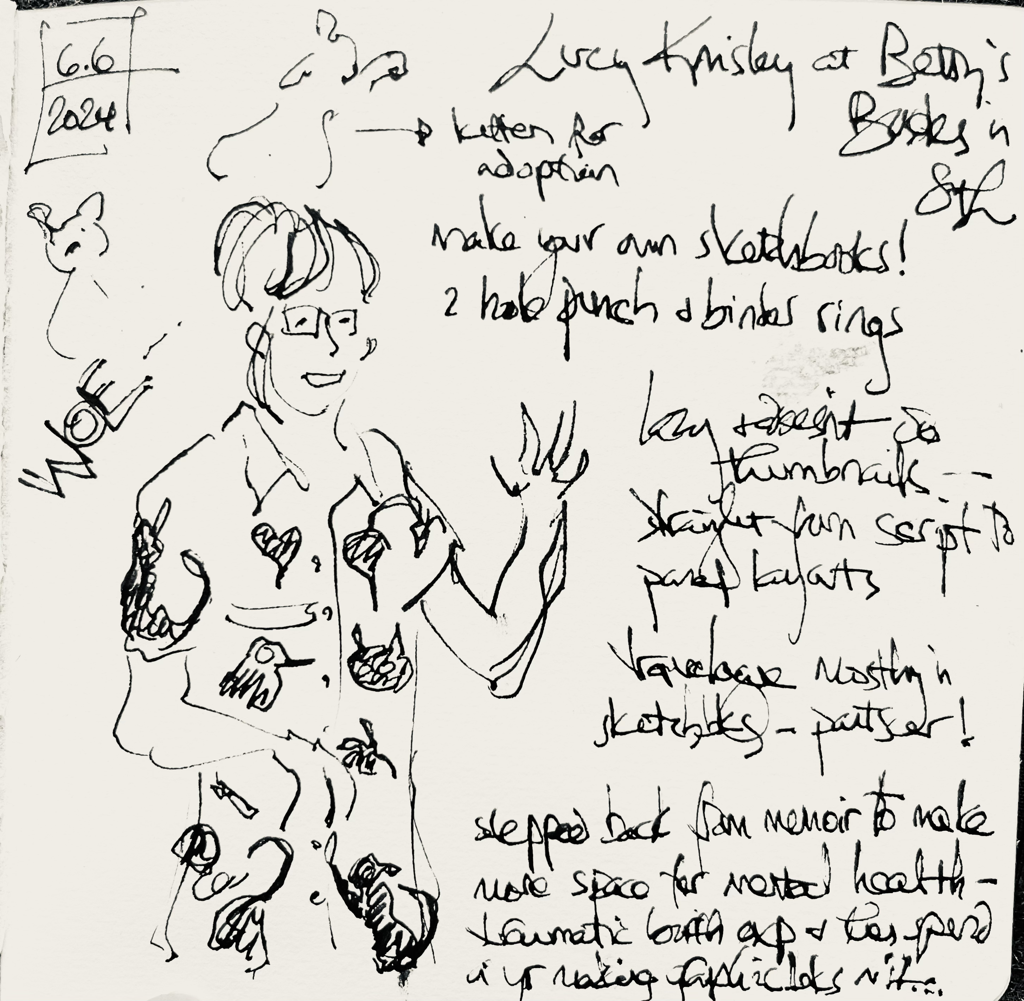 6.6
2024
Lucy Knisley at Betty's
Books in
STL
kitten for
adoption
make your own sketchbooks!
2 hole punch & binder rings
WOE
lazy & doesn't do
thumbnails --
straight from script to
panel layouts
travelogue mostly in
sketchbks -
stepped back from memoir to make
more space for mental health -
traumatic birth exp &
yr making graphic